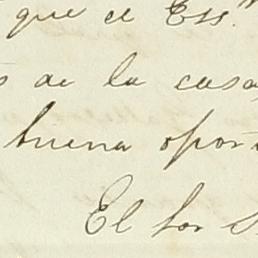 que el Ess.
de la casa
buena oport
El Sor S